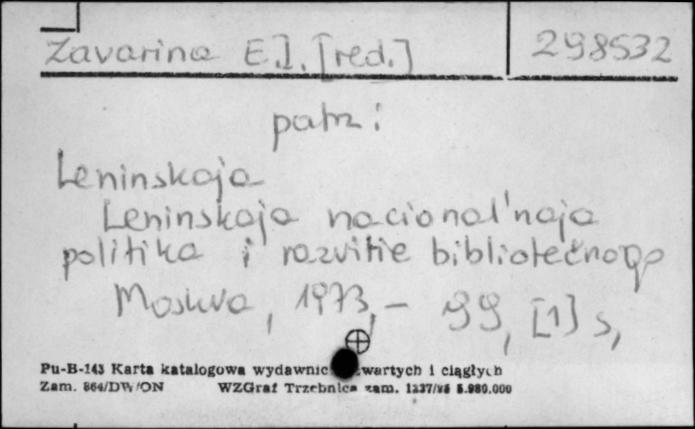 Zavarina E.I. [red.] 298532
patrz:
Leninskaja
Leninskaja nacional'naja
politika i razvitie bibliotečnogo
Moskva, 1973, - 99, [1] s,
Pu-B-143 Karta katalogowa wydawnic wartych i ciągłych
Zam. 864/DW/ON WZGraf Trzebnica zam. 5.980.000